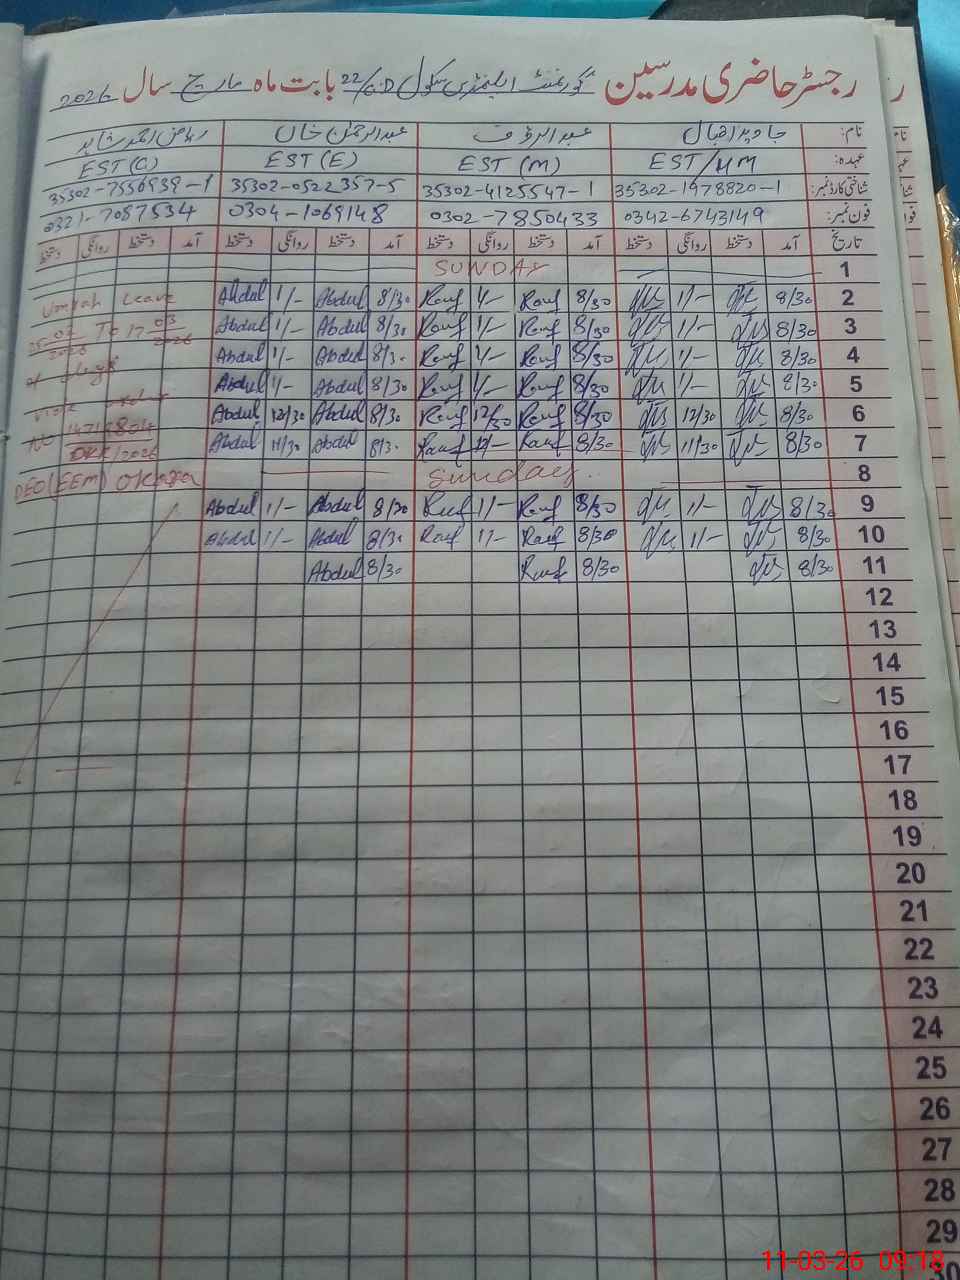 رجسٹر حاضری مدرسین گورنمنٹ ایلیمنٹری سکول 22/G.D بابت ماہ مارچ سال 2026
نام: جاوید اقبال عبدالرؤف عبدالرحمٰن خاں ریاض احمد شاہد
عہدہ: EST/MM EST (M) EST (E) EST (C)
شناختی کارڈ نمبر: 35302-1978820-1 35302-4125547-1 35302-0522357-5 35302-7556939-1
فون نمبر: 0342-6743149 0302-7850433 0304-1069148 0321-7087534
تاریخ آمد دستخط روانگی دستخط آمد دستخط روانگی دستخط آمد دستخط روانگی دستخط آمد دستخط روانگی دستخط
1 SUNDAY
2 8/30 1/- 8/30 Rauf 1/- Rauf 8/30 Abdul 1/- Abdul Umrah Leave
3 8/30 1/- 8/30 Rauf 1/- Rauf 8/30 Abdul 1/- Abdul To 17-03-2026
4 8/30 1/- 8/30 Rauf 1/- Rauf 8/30 Abdul 1/- Abdul
5 8/30 1/- 8/30 Rauf 1/- Rauf 8/30 Abdul 1/- Abdul
6 8/30 12/30 8/30 Rauf 12/30 Rauf 8/30 Abdul 12/30 Abdul
7 8/30 11/30 8/30 Rauf Rauf 8/30 Abdul 11/30 Abdul
8 Sunday DEO (EEM) Okara
9 8/30 1/- 8/30 Rauf 1/- Rauf 8/30 Abdul 1/- Abdul
10 8/30 1/- 8/30 Rauf 1/- Rauf 8/30 Abdul 1/- Abdul
11 8/30 8/30 Rauf 8/30 Abdul
12
13
14
15
16
17
18
19
20
21
22
23
24
25
26
27
28
29
30
11-03-26 09:18